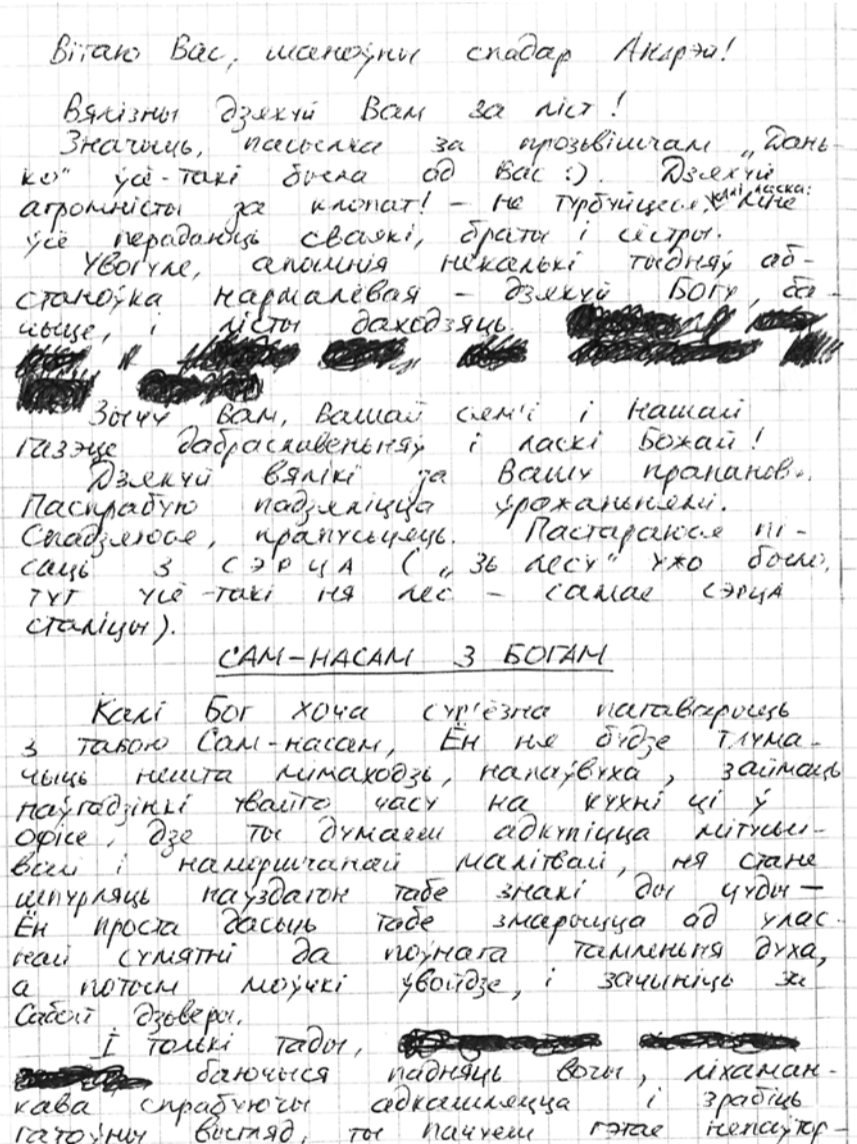 Вітаю Вас, шаноўны спадар Андрэй!
Вялізны дзякуй Вам за ліст!
Значыць, пасылка за прозьвішчам „Дань-
ко" ўсё-такі была ад Вас :). Дзякуй
агромністы за клопат! – не турбуйцеся, калі ласка: мне
ўсё перададуць сваякі, браты і сёстры.
Увогуле, апошнія некалькі тыдняў аб-
станоўка нармалёвая – дзякуй Богу, ба-
чыце, і лісты даходзяць.
Зычу Вам, Вашай сям'і і нашай
газэце дабраславеньняў і ласкі Божай!
Дзякуй вялікі за Вашу прапанов.
Паспрабую падзяліцца ўражаньнямі.
Спадзяюся, прапусьцяць. Пастараюся пі-
саць з СЭРЦА („зь лесу" ужо было,
тут усё-такі ня лес – самае сэрца
сталіцы).
САМ-НАСАМ З БОГАМ
Калі Бог хоча сур'ёзна пагаварыць
з табою Сам-насам, Ён ня будзе тлума-
чыць нешта мімаходзь, напаўвуха, займаць
паўгадзінкі твайго часу на кухні ці ў
офісе, дзе ты думаеш адкупіцца мітусьлі-
вай і намаршчанай малітвай, ня стане
шпурляць наўздагон табе знакі ды цуды —
Ён проста дасьць табе змарыцца ад улас-
най сумятні да поўнага тамленьня духа,
а потым моўчкі ўвойдзе, і зачыніць за
Сабой дзьверы.
І толькі тады,
баючыся падняць вочы, ліхаман-
кава спрабуючы адкашляцца і зрабіць
гатоўны выгляд, ты пачуеш гэтае непаўтор-